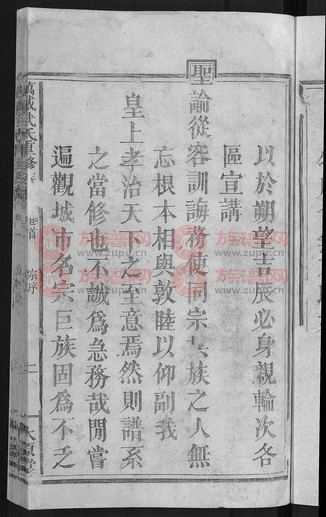 以於朔望吉辰必身親輪次各
區宣講
聖諭從容訓誨務使同宗共族之人無
忘根本相與敦睦以仰副我
皇上孝治天下之至意焉然則譜系
之當修也不誠爲急務哉閒嘗
遍觀城市名宗巨族固爲不乏
氏重修
首
序
二
族谱网
www.zupu.cn